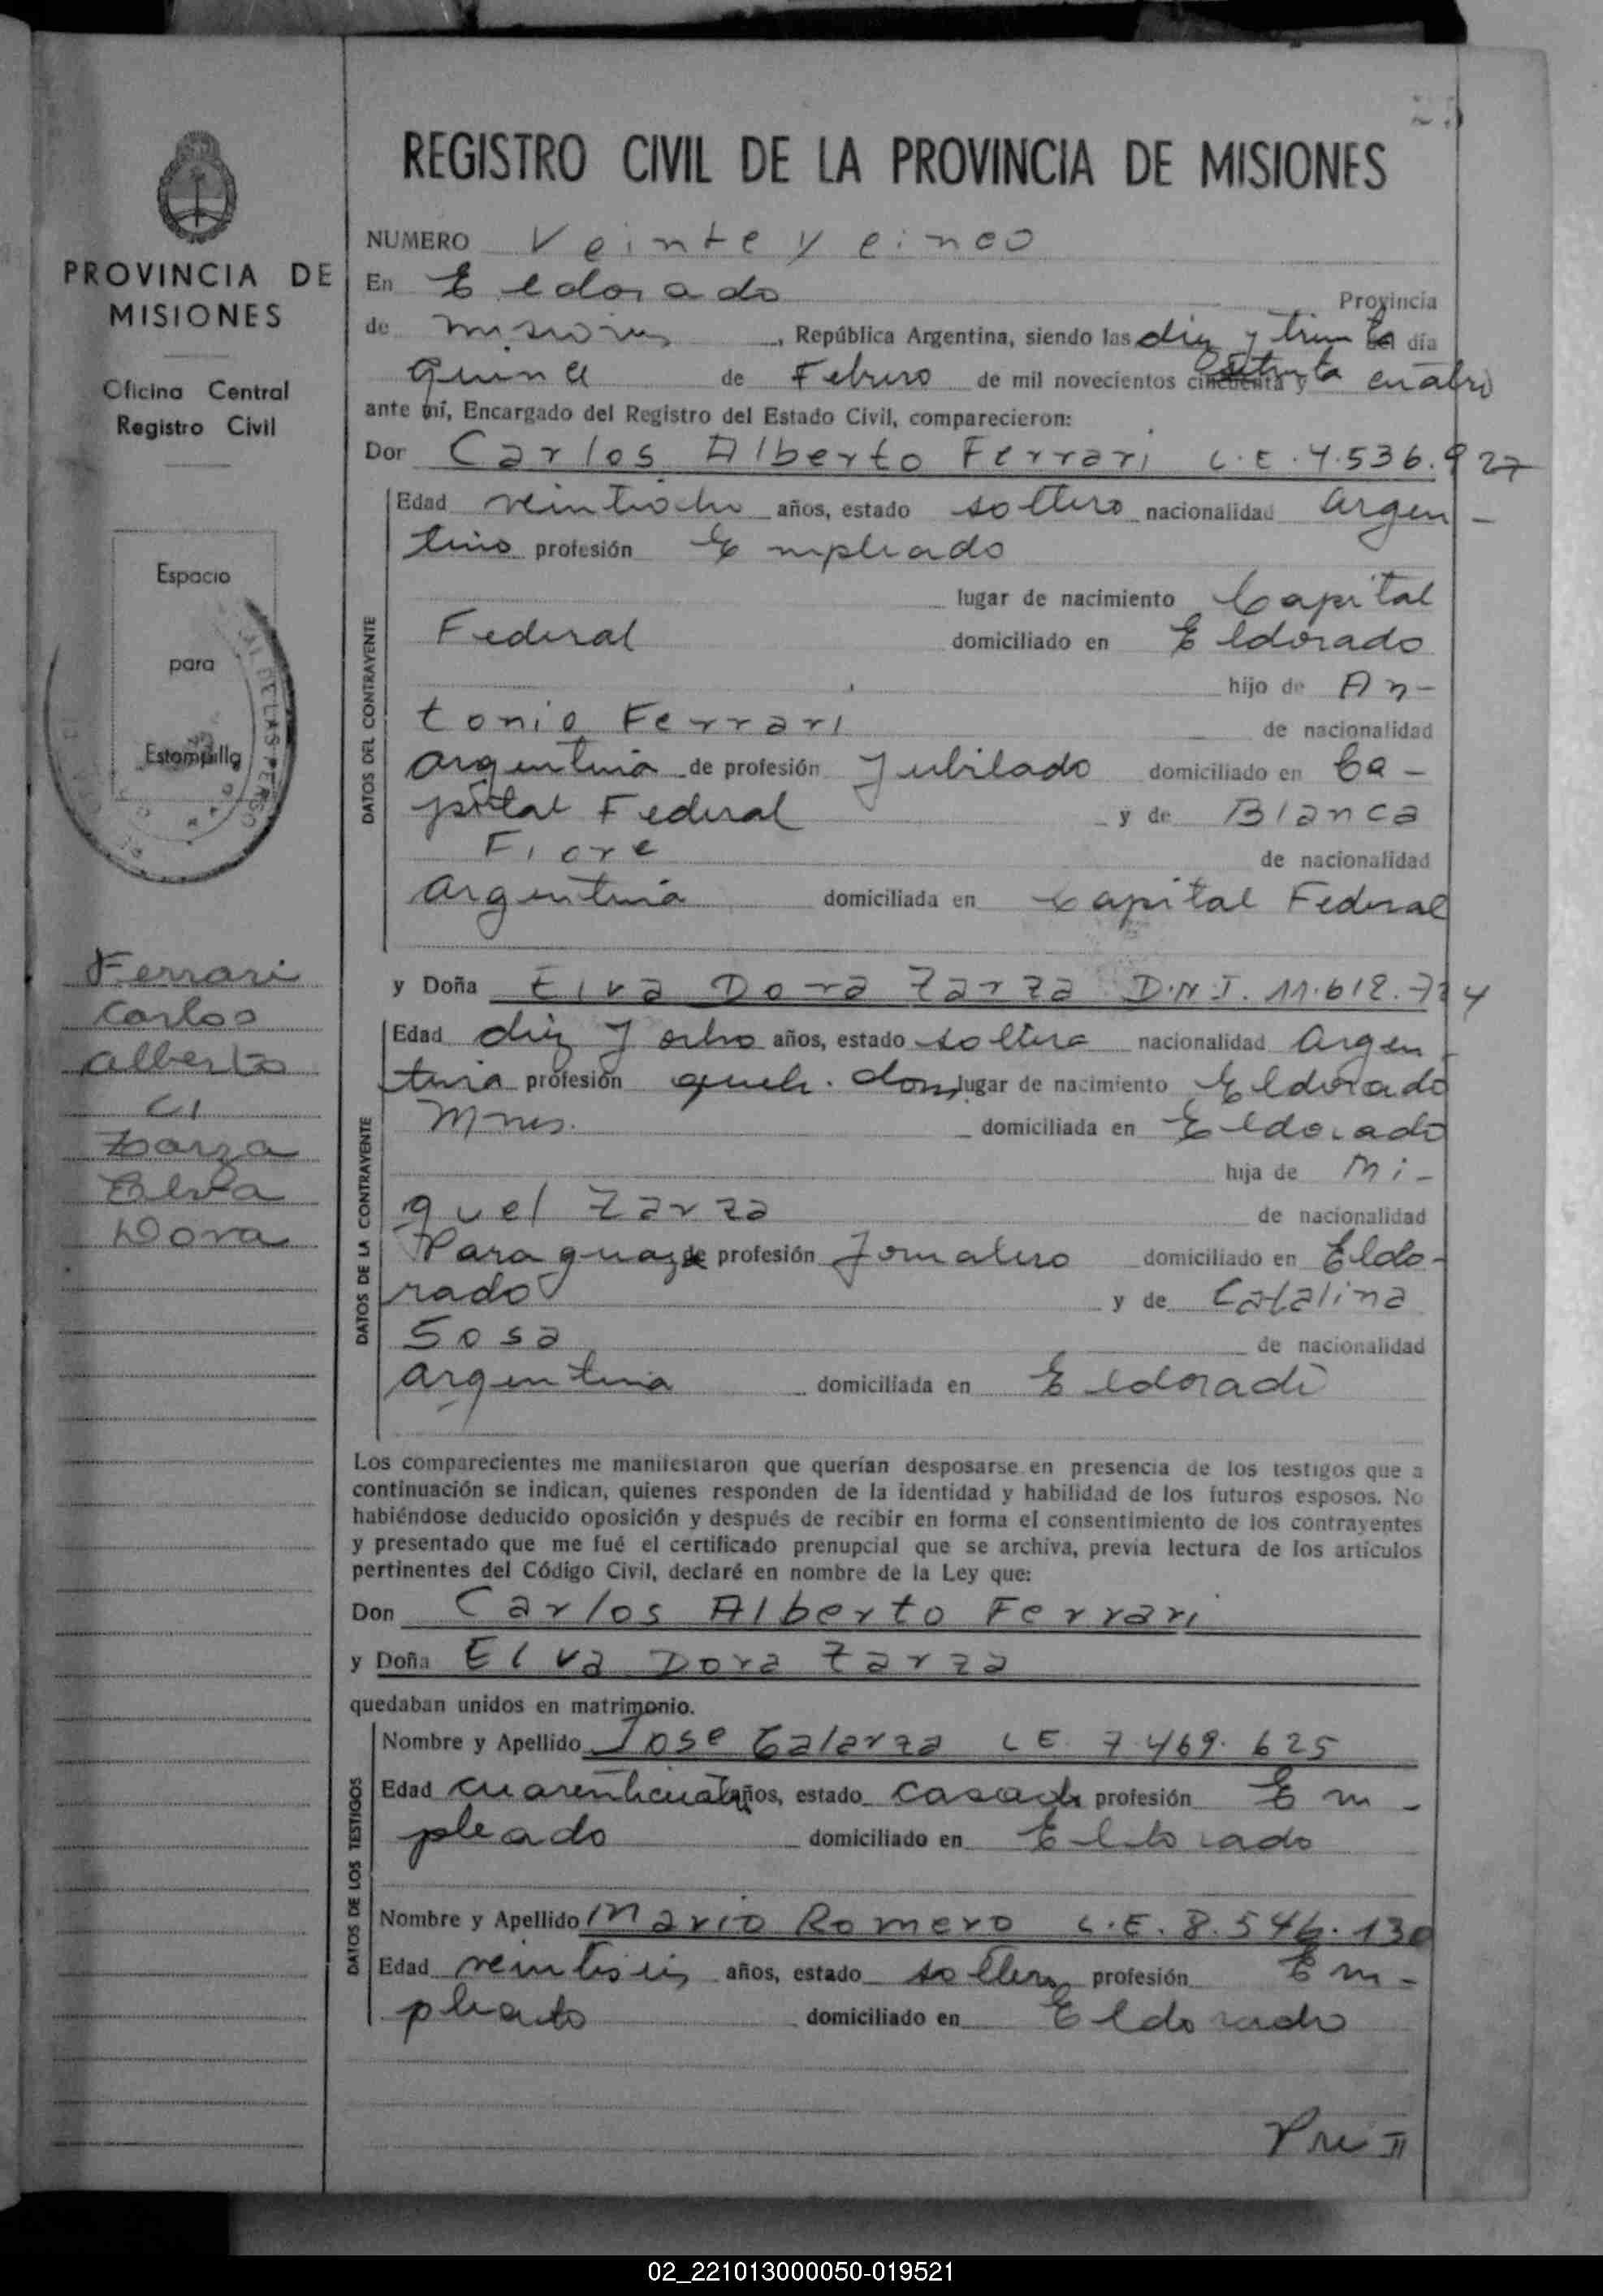 REGISTRO CIVIL DE LA PROVINCIA DE MISIONES
PROVINCIA DE
MISIONES
Oficina Central
Registro Civil
Espacio
para
Estampilla
Ferrari
Carlos
Alberto
C/
Zarza
Elva
Dora
NUMERO Veinte y cinco
En Eldorado Provincia
de Misiones, República Argentina, siendo las diez y treinta del día
quince de Febrero de mil novecientos cincuenta y setenta cuatro
ante mí, Encargado del Registro del Estado Civil, comparecieron:
Don Carlos Alberto Ferrari L.E. 4.536.927
Edad veintiocho años, estado soltero nacionalidad argen-
tino profesión Empleado
lugar de nacimiento Capital
Federal domiciliado en Eldorado
hijo de An-
tonio Ferrari de nacionalidad
argentina de profesión Jubilado domiciliado en Ca-
pital Federal y de Blanca
Fiore de nacionalidad
argentina domiciliada en Capital Federal
DATOS DEL CONTRAYENTE
y Doña Elva Dora Zarza D.N.I.
Edad diez y ocho años, estado soltera nacionalidad argen-
tina profesión lugar de nacimiento Eldorado
Mnes. domiciliada en Eldorado
hija de Mi-
guel Zarza de nacionalidad
Paraguay de profesión Jornalero domiciliado en Eldo-
rado y de Catalina
Sosa de nacionalidad
argentina domiciliada en Eldorado
DATOS DE LA CONTRAYENTE
Los comparecientes me manifestaron que querían desposarse en presencia de los testigos que a
continuación se indican, quienes responden de la identidad y habilidad de los futuros esposos. No
habiéndose deducido oposición y después de recibir en forma el consentimiento de los contrayentes
y presentado que me fué el certificado prenupcial que se archiva, previa lectura de los artículos
pertinentes del Código Civil, declaré en nombre de la Ley que:
Don Carlos Alberto Ferrari
y Doña Elva Dora Zarza
quedaban unidos en matrimonio.
Nombre y Apellido Jose Galarza LE 7.469.625
Edad cuarenticuatro años, estado casado profesión Em-
pleado domiciliado en Eldorado
Nombre y Apellido Mario Romero L.E. 8.546.130
Edad veintiseis años, estado soltero profesión Em-
pleado domiciliado en Eldorado
DATOS DE LOS TESTIGOS
02_221013000050-019521